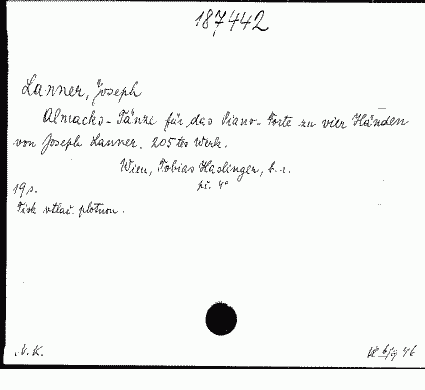 187442
Lanner, Joseph
Almacks-Tänze für das Piano-Forte zu vier Händen
von Joseph Lanner. 205tes Werk.
Wien, Tobias Haslinger, b.r.
19 s. 4°
Tisk vtlač. plotnou.
N.K. 46